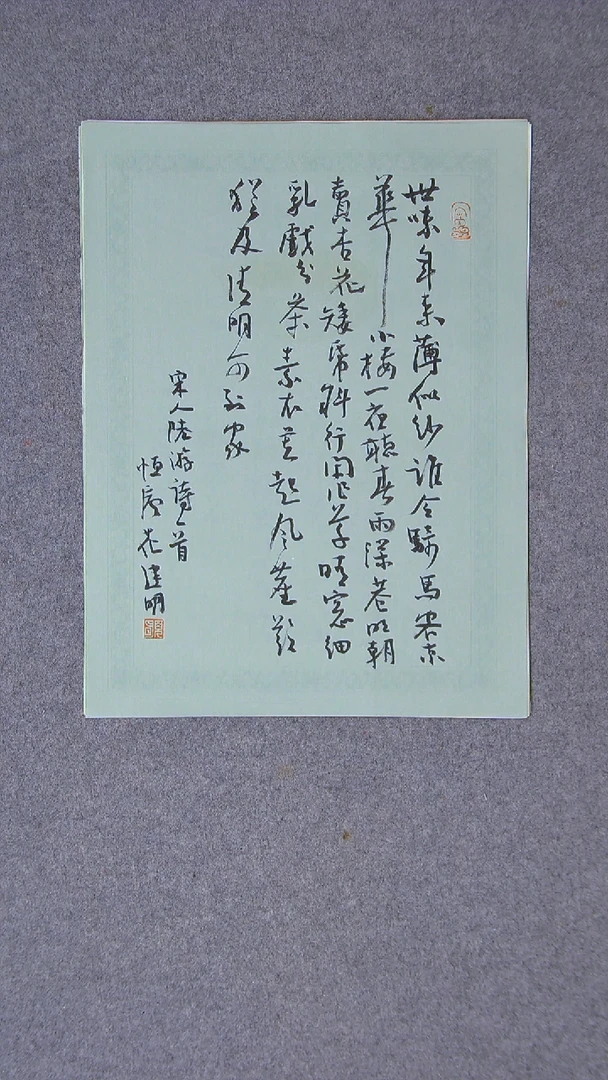 世味年來薄似紗誰令騎馬客京
華小樓一夜聽春雨深巷明朝
賣杏花矮帋斜行閒作草晴窗細
乳戲分茶素衣莫起風塵歎
猶及清明可到家
宋人陸游詩一首
恒廬花建明